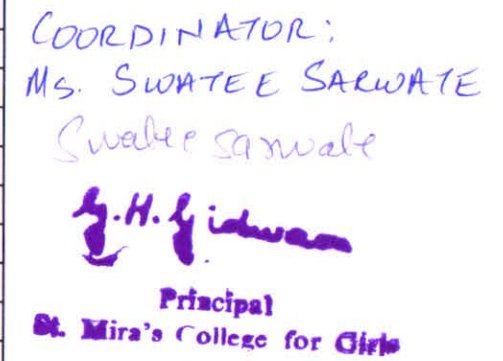 COORDINATOR:
MS. SWATEE SARWATE
Swatee Sarwate
G.H. Gidwani
Principal
St. Mira's College for Girls